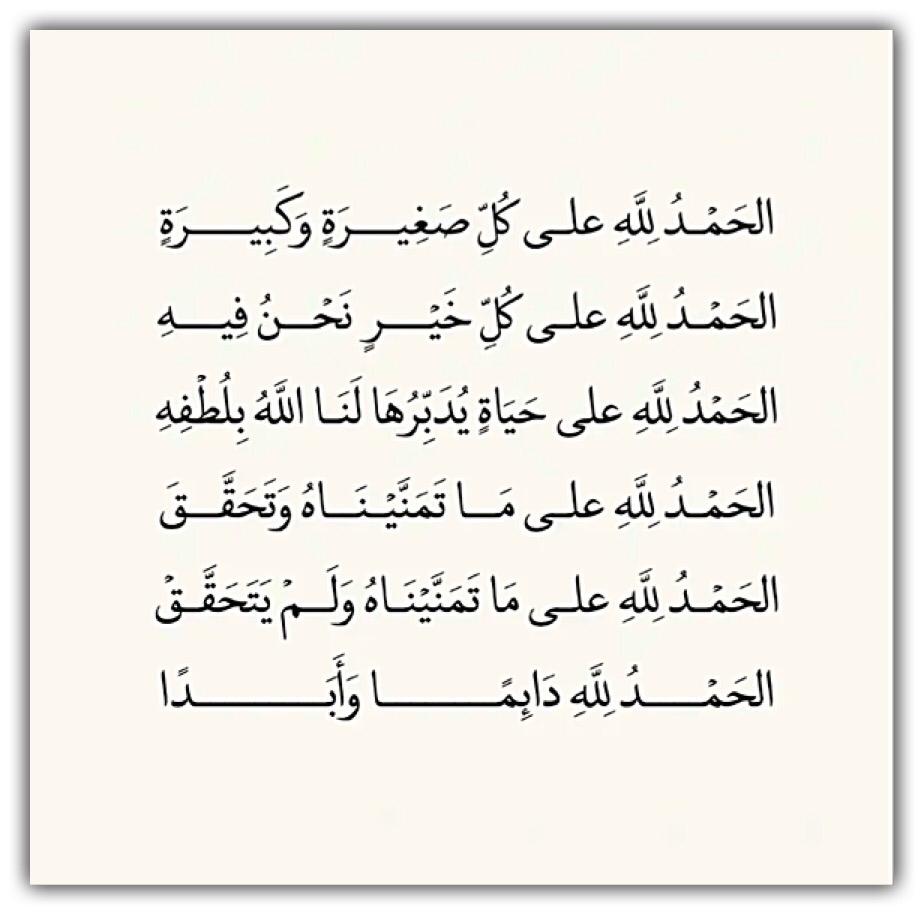 الحَمْدُ لِلَّهِ على كُلِّ صَغِيرَةٍ وَكَبِيرَةٍ
الحَمْدُ لِلَّهِ على كُلِّ خَيْرٍ نَحْنُ فِيهِ
الحَمْدُ لِلَّهِ على حَيَاةٍ يُدَبِّرُهَا لَنَا اللَّهُ بِلُطْفِهِ
الحَمْدُ لِلَّهِ على مَا تَمَنَّيْنَاهُ وَتَحَقَّقَ
الحَمْدُ لِلَّهِ على مَا تَمَنَّيْنَاهُ وَلَمْ يَتَحَقَّقْ
الحَمْدُ لِلَّهِ دَايِمًا وَأَبَدًا